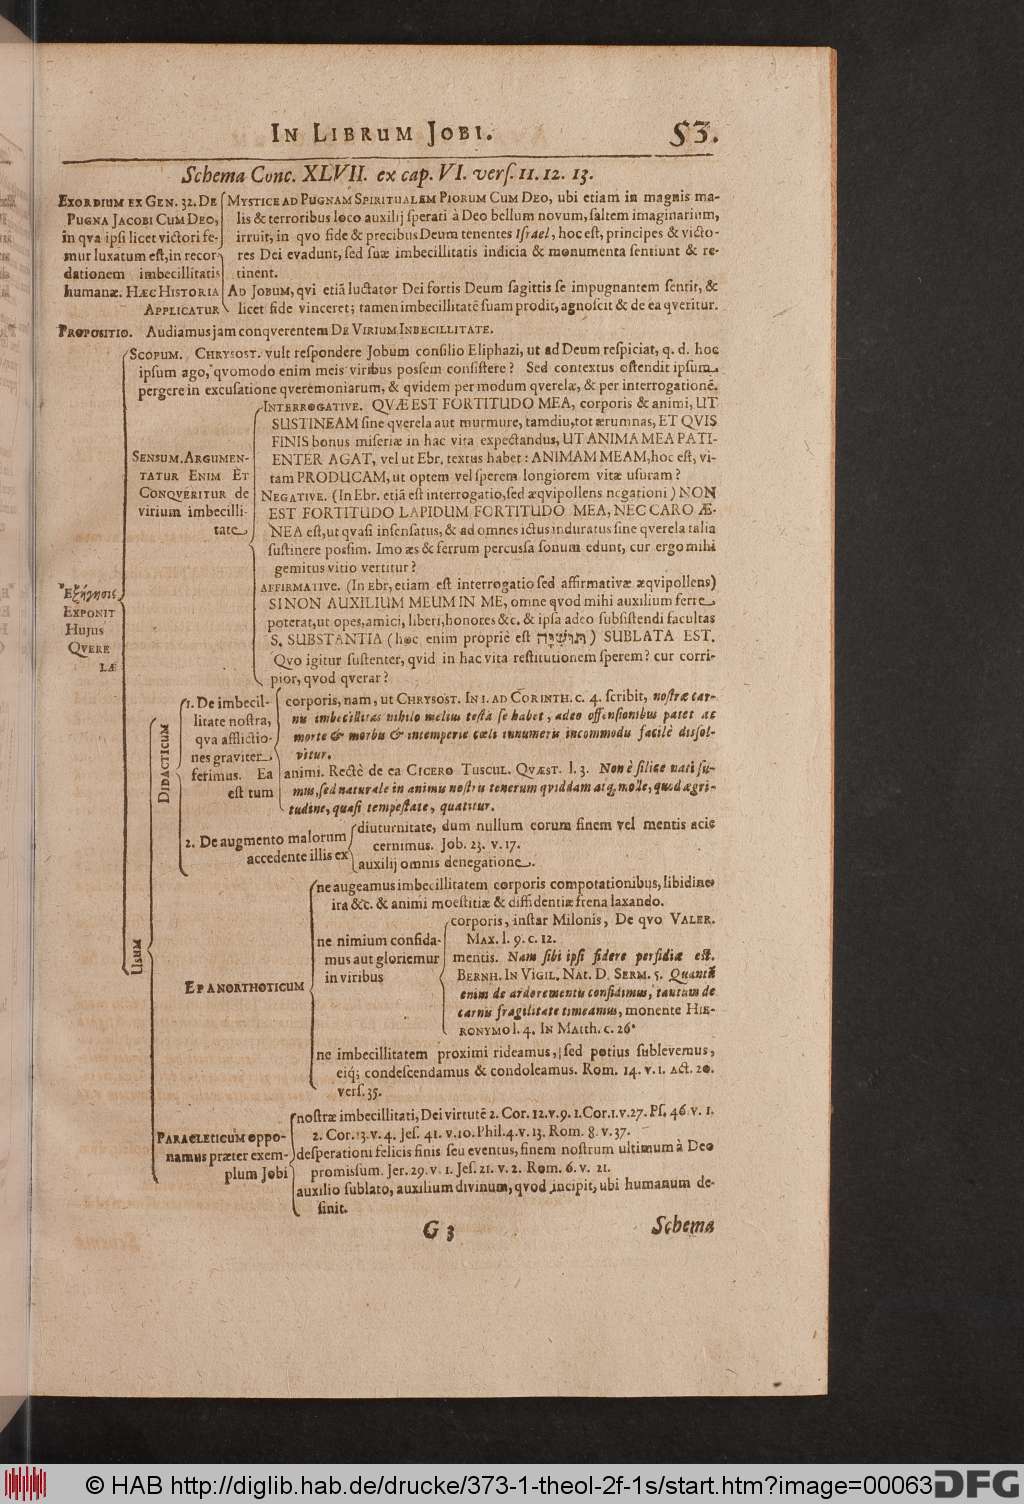 IN LIBRUM JOBI. 53.
Schema Conc. XLVII. ex cap. VI. vers. 11. 12. 13.
EXORDIUM EX GEN. 32. DE
PUGNA JACOBI CUM DEO,
in qva ipsi licet victori fe-
mur luxatum est, in recor-
dationem imbecillitatis
humanæ. HÆC HISTORIA
APPLICATUR
MYSTICE AD PUGNAM SPIRITUALEM PIORUM CUM DEO, ubi etiam in magnis ma-
lis & terroribus loco auxilij sperati à Deo bellum novum, saltem imaginarium,
irruit, in qvo fide & precibus Deum tenentes Israel, hoc est, principes & victo-
res Dei evadunt, sed suæ imbecillitatis indicia & monumenta sentiunt & re-
tinent.
AD JOBUM, qvi etiã luctator Dei fortis Deum sagittis se impugnantem sentit, &
licet fide vinceret; tamen imbecillitatẽ suam prodit, agnoscit & de ea qveritur.
PROPOSITIO. Audiamus jam conqverentem DE VIRIUM INBECILLITATE.
Ἐξήγησις
EXPONIT
Hujus
QVERE
LÆ
SCOPUM. CHRYSOST. vult respondere Jobum consilio Eliphazi, ut ad Deum respiciat, q. d. hoc
ipsum ago, qvomodo enim meis viribus possem consistere? Sed contextus ostendit ipsum
pergere in excusatione qveremoniarum, & qvidem per modum qverelæ, & per interrogationẽ.
SENSUM. ARGUMEN-
TATUR ENIM ET
CONQVERITUR de
virium imbecilli-
tate
INTERROGATIVE. QVÆ EST FORTITUDO MEA, corporis & animi, UT
SUSTINEAM sine qverela aut murmure, tamdiu, tot ærumnas, ET QVIS
FINIS bonus miseriæ in hac vita expectandus, UT ANIMA MEA PATI-
ENTER AGAT, vel ut Ebr. textus habet: ANIMAM MEAM, hoc est, vi-
tam PRODUCAM, ut optem vel sperem longiorem vitæ usuram?
NEGATIVE. (In Ebr. etiã est interrogatio, sed æqvipollens negationi) NON
EST FORTITUDO LAPIDUM FORTITUDO MEA, NEC CARO Æ-
NEA est, ut qvasi insensatus, & ad omnes ictus induratus sine qverela talia
sustinere possim. Imo æs & ferrum percussa sonum edunt, cur ergo mihi
gemitus vitio vertitur?
AFFIRMATIVE. (In Ebr, etiam est interrogatio sed affirmativæ æqvipollens)
SI NON AUXILIUM MEUM IN ME, omne qvod mihi auxilium ferre
poterat, ut opes, amici, liberi, honores &c. & ipsa adeo subsistendi facultas
S. SUBSTANTIA (hoc enim propriè est תושיה) SUBLATA EST.
Qvo igitur sustenter, qvid in hac vita restitutionem sperem? cur corri-
pior, qvod qverar?
USUM
DIDACTICUM
1. De imbecil-
litate nostra,
qva afflictio-
nes graviter
ferimus. Ea
est tum
corporis, nam, ut CHRYSOST. IN 1. AD CORINTH. c. 4. scribit, nostræ car-
nis imbecillitas nihilo melius testâ se habet, adeo offensionibus patet ac
morte & morbis & intemperie cœli innumeris incommodis facilè dissol-
vitur.
animi. Rectè de ea CICERO TUSCUL. QVÆST. l. 3. Non è silice nati su-
mus, sed naturale in animis nostris tenerum qviddam atq; molle, quod ægri-
tudine, quasi tempestate, quatitur.
2. De augmento malorum
accedente illis ex
diuturnitate, dum nullum eorum finem vel mentis acie
cernimus. Job. 23. v. 17.
auxilij omnis denegatione.
EPANORTHOTICUM
ne augeamus imbecillitatem corporis compotationibus, libidine
ira &c. & animi moestitiæ & diffidentiæ frena laxando.
ne nimium confida-
mus aut gloriemur
in viribus
corporis, instar Milonis, De qvo VALER.
MAX. l. 9. c. 12.
mentis. Nam sibi ipsi fidere perfidiæ est.
BERNH. IN VIGIL. NAT. D. SERM. 5. Quantũ
enim de ardore mentis confidimus, tantum de
carnis fragilitate timeamus, monente HIE-
RONYMO l. 4. IN MATTH. c. 26.
ne imbecillitatem proximi rideamus, sed potius sublevemus,
eiq; condescendamus & condoleamus. Rom. 14. v. 1. Act. 20.
vers. 35.
PARACLETICUM oppo-
namus præter exem-
plum Jobi
nostræ imbecillitati, Dei virtutẽ 2. Cor. 12. v. 9. 1. Cor. 1. v. 27. Ps. 46. v. 1.
2. Cor. 13. v. 4. Jes. 41. v. 10. Phil. 4. v. 13. Rom. 8. v. 37.
desperationi felicis finis seu eventus, finem nostrum ultimum à Deo
promissum. Jer. 29. v. 1. Jes. 21. v. 2. Rom. 6. v. 21.
auxilio sublato, auxilium divinum, qvod incipit, ubi humanum de-
sinit.
G 3 Schema
© HAB http://diglib.hab.de/drucke/373-1-theol-2f-1s/start.htm?image=00063 DFG